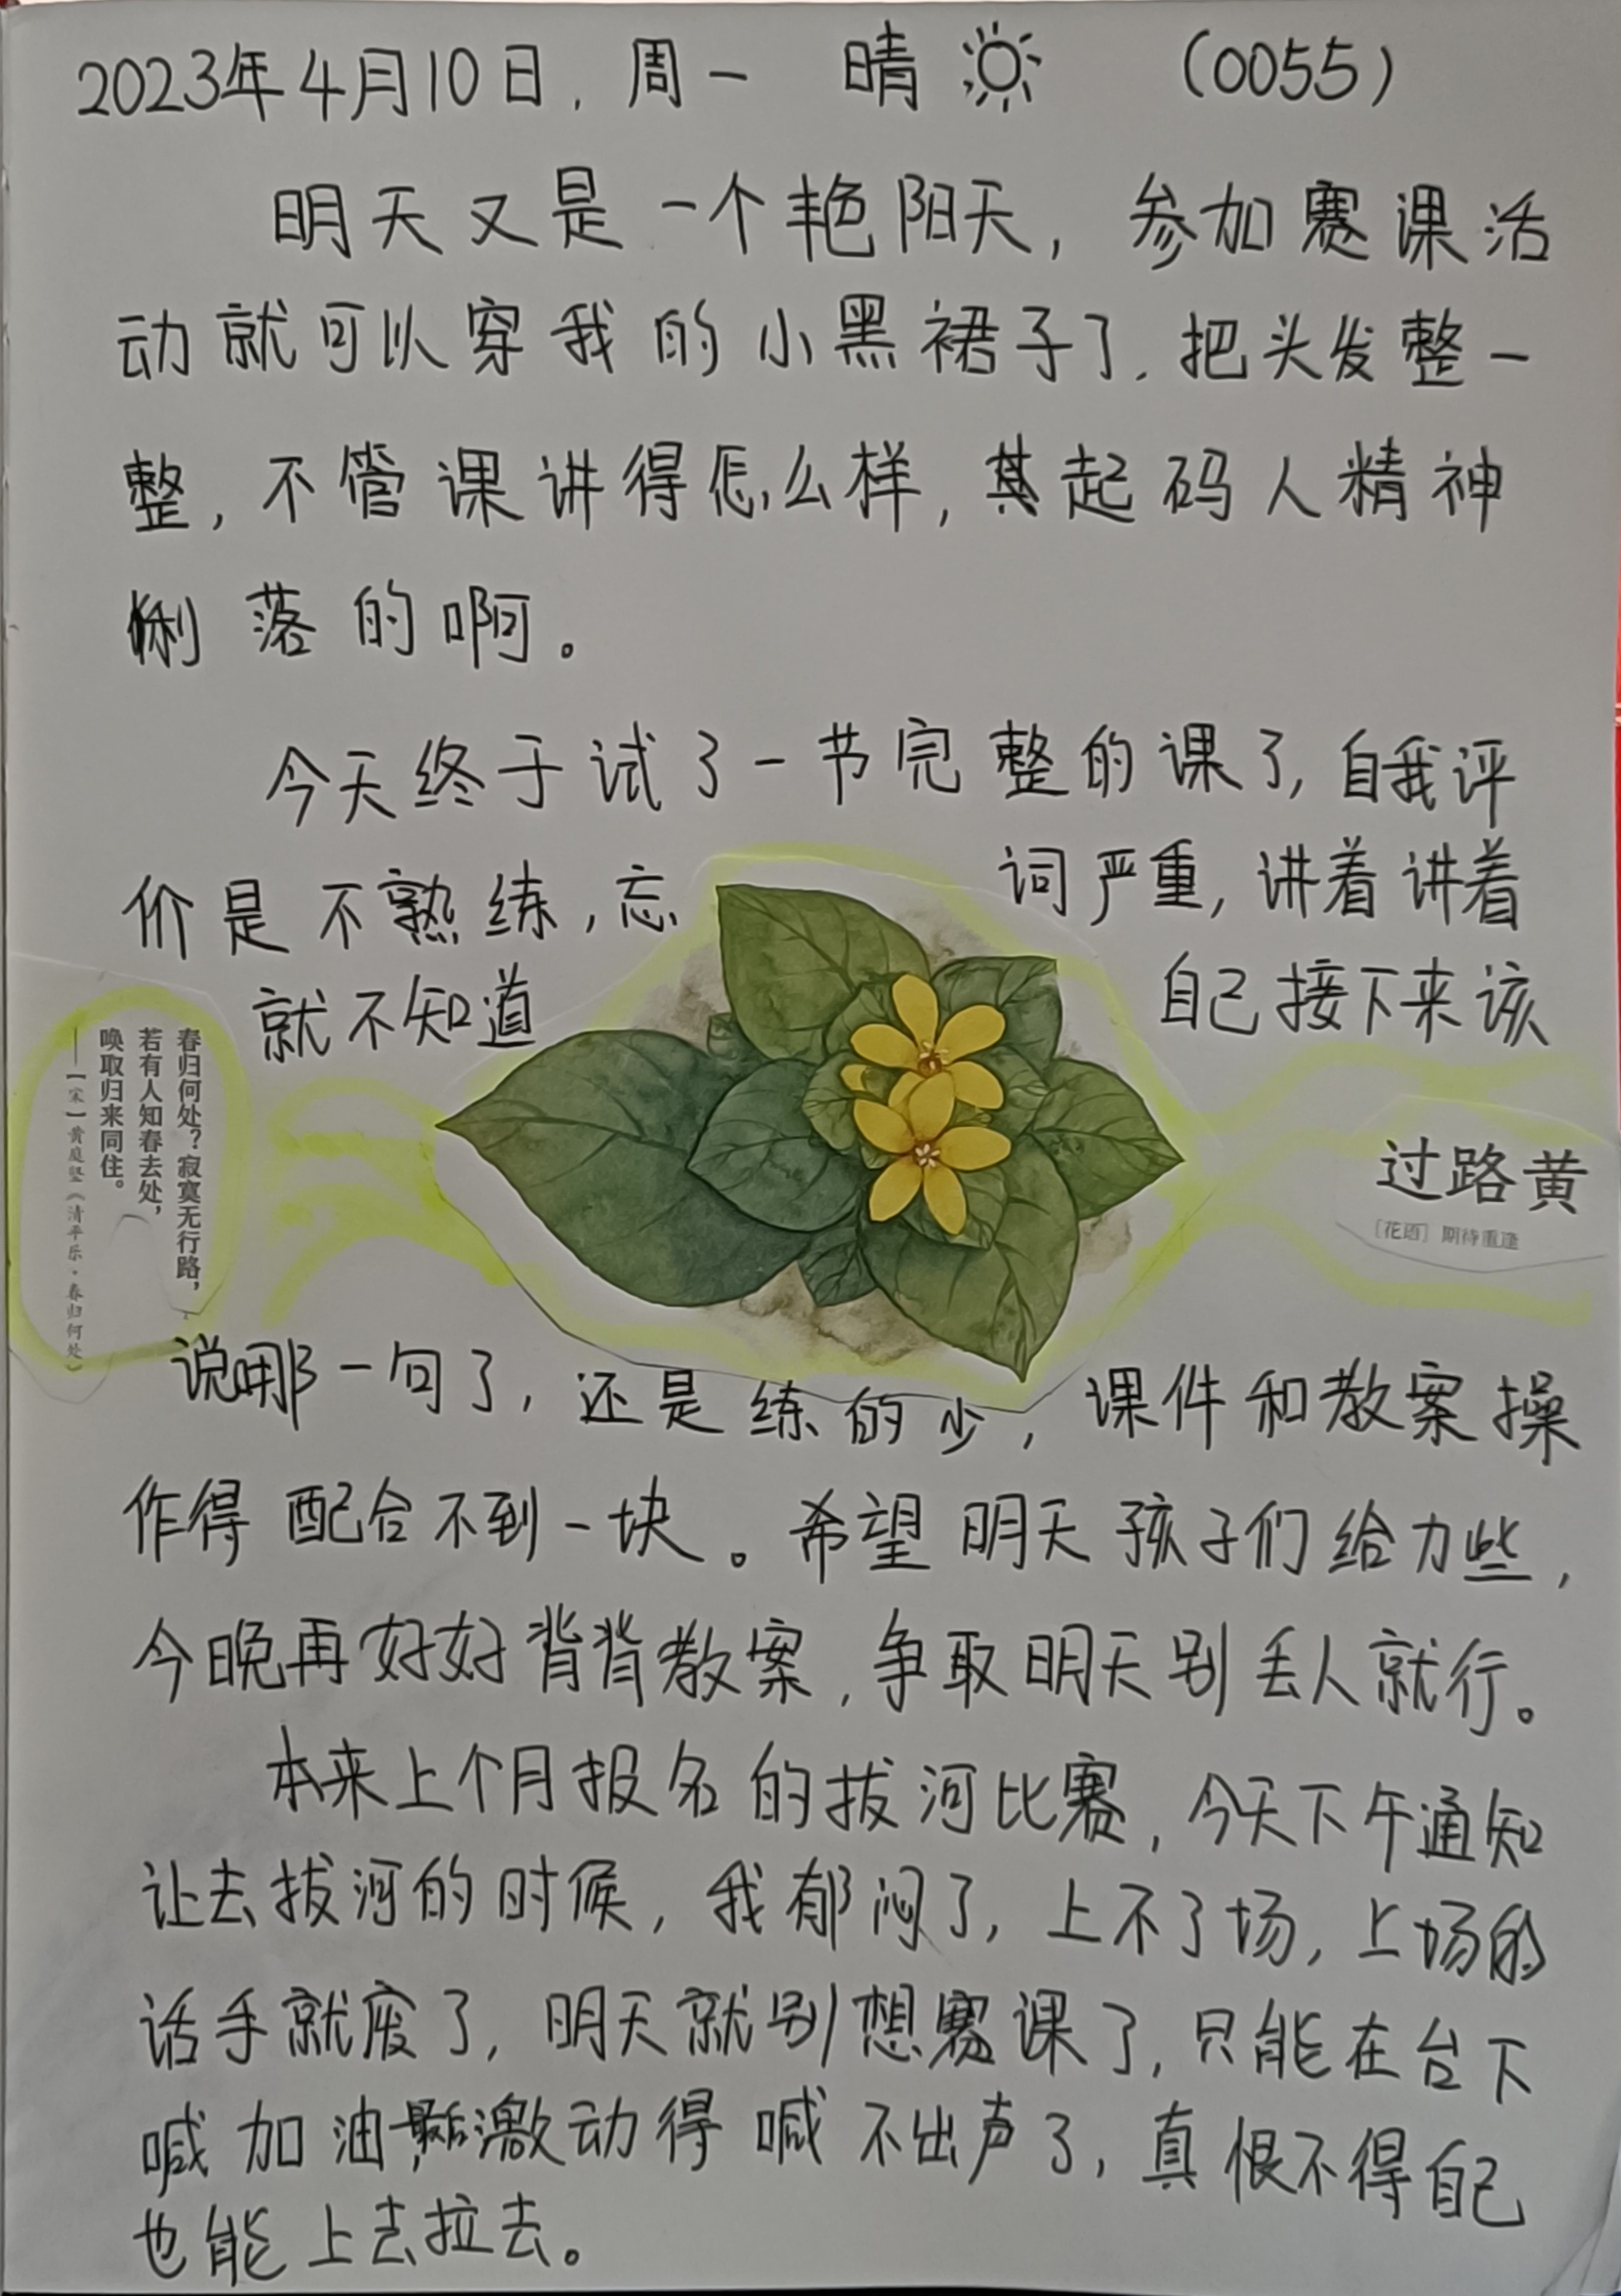 2023年4月10日，周一 晴 (0055)
明天又是一个艳阳天，参加赛课活
动就可以穿我的小黑裙子了，把头发整一
整，不管课讲得怎么样，其起码人精神
俐落的啊。
今天终于试了一节完整的课了，自我评
价是不熟练，忘词严重，讲着讲着
就不知道自己接下来该
春归何处？寂寞无行路，
若有人知春去处，
唤取归来同住。
——［宋］黄庭坚《清平乐·春归何处》
过路黄
［花语］期待重逢
说哪一句了，还是练的少，课件和教案操
作得配合不到一块。希望明天孩子们给力些，
今晚再好好背背教案，争取明天别丢人就行。
本来上个月报名的拔河比赛，今天下午通知
让去拔河的时候，我郁闷了，上不了场，上场的
话手就废了，明天就别想赛课了，只能在台下
喊加油，最后激动得喊不出声了，真恨不得自己
也能上去拉去。